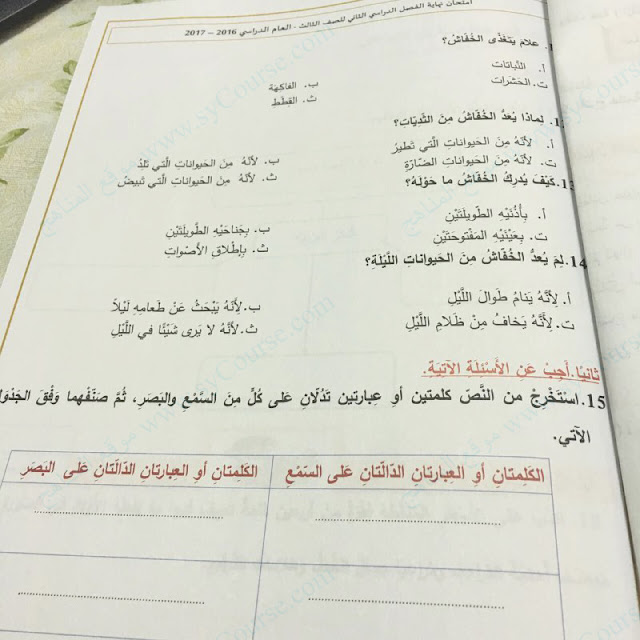 امتحان نهاية الفصل الدراسي الثاني للصف الثالث - العام الدراسي 2016 – 2017
علامَ يَتَغذّى الخُفّاش؟
أ. النَّباتات
ب. الفاكِهَة
ت. الحَشَرات
ث. القِطَط
لِماذا يُعدُّ الخُفّاش مِنَ الثَّديِيّاتِ؟
أ. لأنَّهُ مِنَ الحَيواناتِ الَّتي تَطيرُ
ب. لأنَّهُ مِنَ الحَيواناتِ الَّتي تَلِدُ
ت. لأنَّهُ مِنَ الحَيواناتِ الضّارَّةِ
ث. لأنَّهُ مِنَ الحَيواناتِ الَّتي تَبيضُ
13. كَيْفَ يُدرِكُ الخُفّاشُ ما حَوْلَهُ؟
أ. بِأُذُنَيْهِ الطَّويلَتَيْنِ
ب. بِجَناحَيْهِ الطَّويلَتَيْنِ
ت. بِعَيْنَيْهِ المَفْتوحَتَيْنِ
ث. بِإطْلاقِ الأصْواتِ
14. لِمَ يُعدُّ الخُفّاشُ مِنَ الحَيواناتِ اللَّيْلَةِ؟
أ. لِأنَّهُ يَنامُ طَوالَ اللَّيْلِ
ب. لِأنَّهُ يَبْحَثُ عَنْ طَعامِهِ لَيْلاً
ت. لِأنَّهُ يَخافُ مِنْ ظَلامِ اللَّيْلِ
ث. لأنَّهُ لا يَرى شَيْئًا في اللَّيْلِ
ثانيًا. أجِبْ عَنِ الأَسْئِلَةِ الآتيَةِ.
15. اسْتَخْرِجْ من النَّصّ كلمتين أو عِبارتين تدُلّانِ عَلى كُلٍّ مِنَ السَّمْعِ والبَصَرِ، ثُمَّ صَنِّفْهما وَفْقَ الجَدْوَلِ
الآتي.
الكَلِمتانِ أو العِبارتانِ الدّالّتانِ عَلى السَّمْعِ
الكَلِمتانِ أو العِبارتانِ الدّالّتانِ عَلى البَصَرِ
موقع المناهج www.syCourse.com